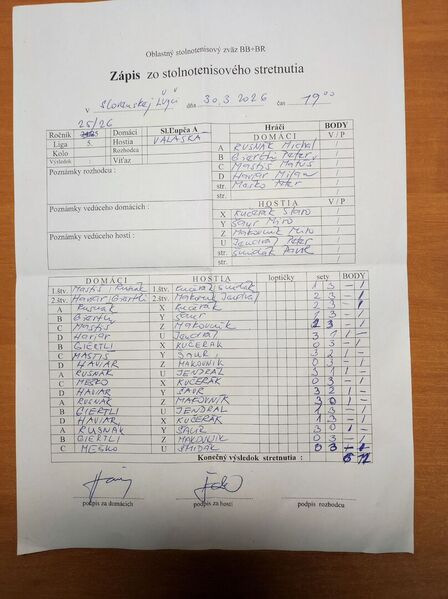 Oblastný stolnotenisový zväz BB+BR
Zápis zo stolnotenisového stretnutia
v Slovenskej Ľupči dňa 30.3 2026 čas 19 00
25/26
Ročník Domáci Sl.Ľupča A
Liga 5. Hostia VALASKÁ
Kolo Rozhodca
Výsledok : Víťaz
Poznámky rozhodcu :
Poznámky vedúceho domácich :
Poznámky vedúceho hostí :
Hráči BODY
DOMÁCI V / P
A RUSNÁK Michal /
B Giertli Peter /
C Mastiš Matúš /
D Haviar Milan /
str. Meško Peter /
str. /
HOSTIA V / P
X Kučerák /
Y Saur Miro /
Z Makovník Miro /
U Jendrál Peter /
str. Šmidák /
str. /
DOMÁCI HOSTIA loptičky sety BODY
1.štv. Mastiš Rusnák 1.štv. Kučerák Šmidák 1 3 - 1
2.štv. Haviar Giertli 2.štv. Makovník Jendrál 2 3 - 1
A Rusnák X Kučerák 2 3 - 1
B Giertli Y Saur 1 3 - 1
C Mastiš Z Makovník 3 - 1
D Haviar U Jendrál 3 1 1 -
B GIERTLI X KUČERÁK 0 3 - 1
C MASTIŠ Y SAUR 3 2 1 -
D HAVIAR Z MAKOVNÍK 0 3 - 1
A RUSNÁK U JENDRÁL 3 1 1 -
C MEŠKO X KUČERÁK 0 3 - 1
D HAVIAR Y SAUR 3 2 1 -
A RUSNÁK Z MAKOVNÍK 3 0 1 -
B GIERTLI U JENDRÁL 1 3 - 1
D HAVIAR X KUČERÁK 1 3 - 1
A RUSNÁK Y SAUR 3 0 1 -
B GIERTLI Z MAKOVNÍK 0 3 - 1
C MEŠKO U ŠMIDÁK 0 3 - 1
Konečný výsledok stretnutia : 6 12
podpis za domácich podpis za hostí podpis rozhodcu